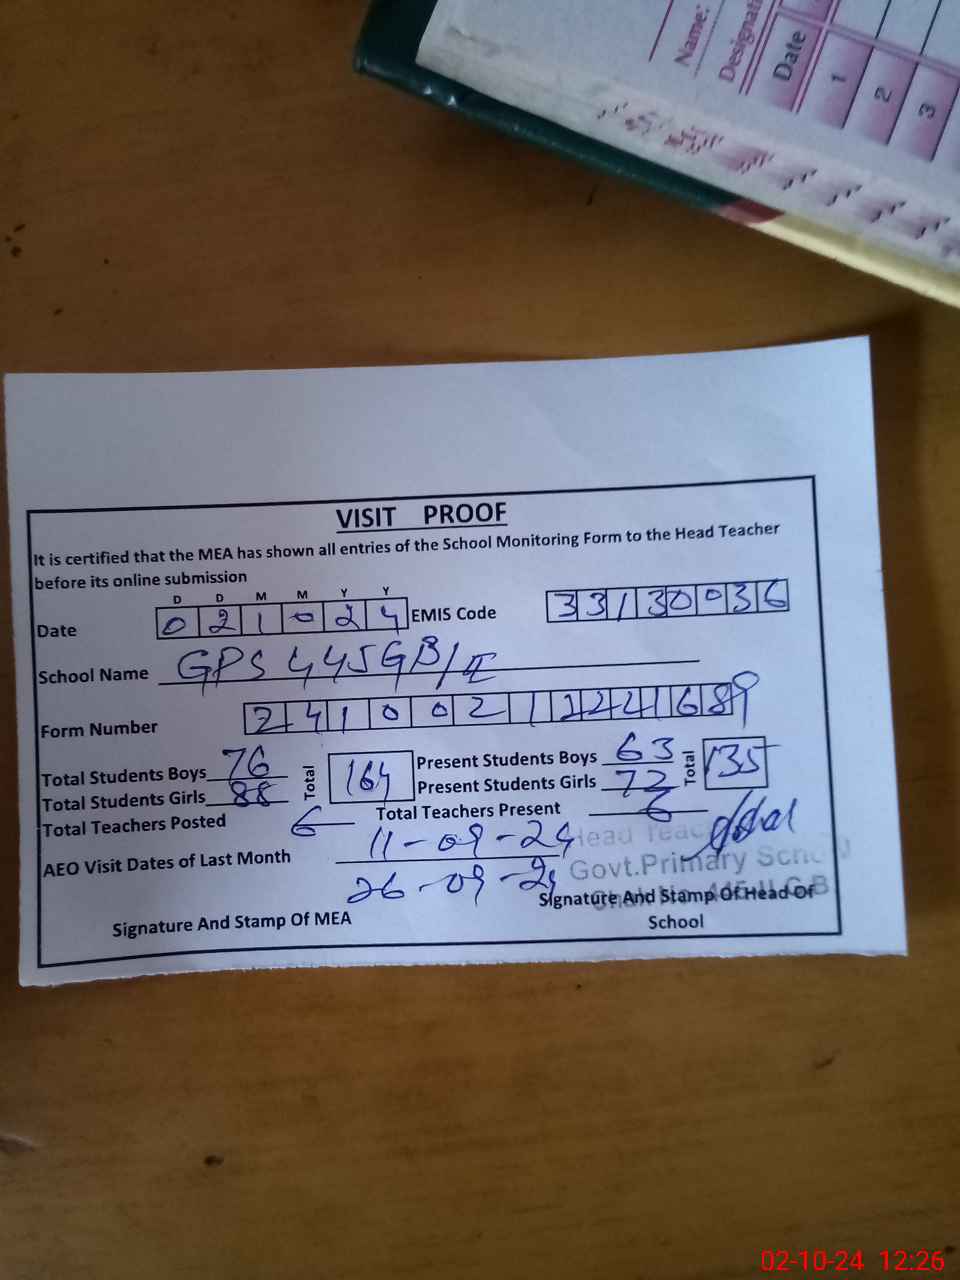 Name:
Designati
Date
1
2
3
VISIT PROOF
It is certified that the MEA has shown all entries of the School Monitoring Form to the Head Teacher
before its online submission
D D M M Y Y
Date 0 2 1 0 2 4 EMIS Code 3 3 1 3 0 0 3 6
School Name GPS 445GB/II
Form Number
Total Students Boys 76 Total 164 Present Students Boys 63 Total 135
Total Students Girls 88 Present Students Girls 72
Total Teachers Posted 6 Total Teachers Present 6
AEO Visit Dates of Last Month 11-09-24
26-09-24
Head Teac
Govt.Primary School
Signature And Stamp Of MEA
Signature And Stamp Of Head Of
School
02-10-24 12:26